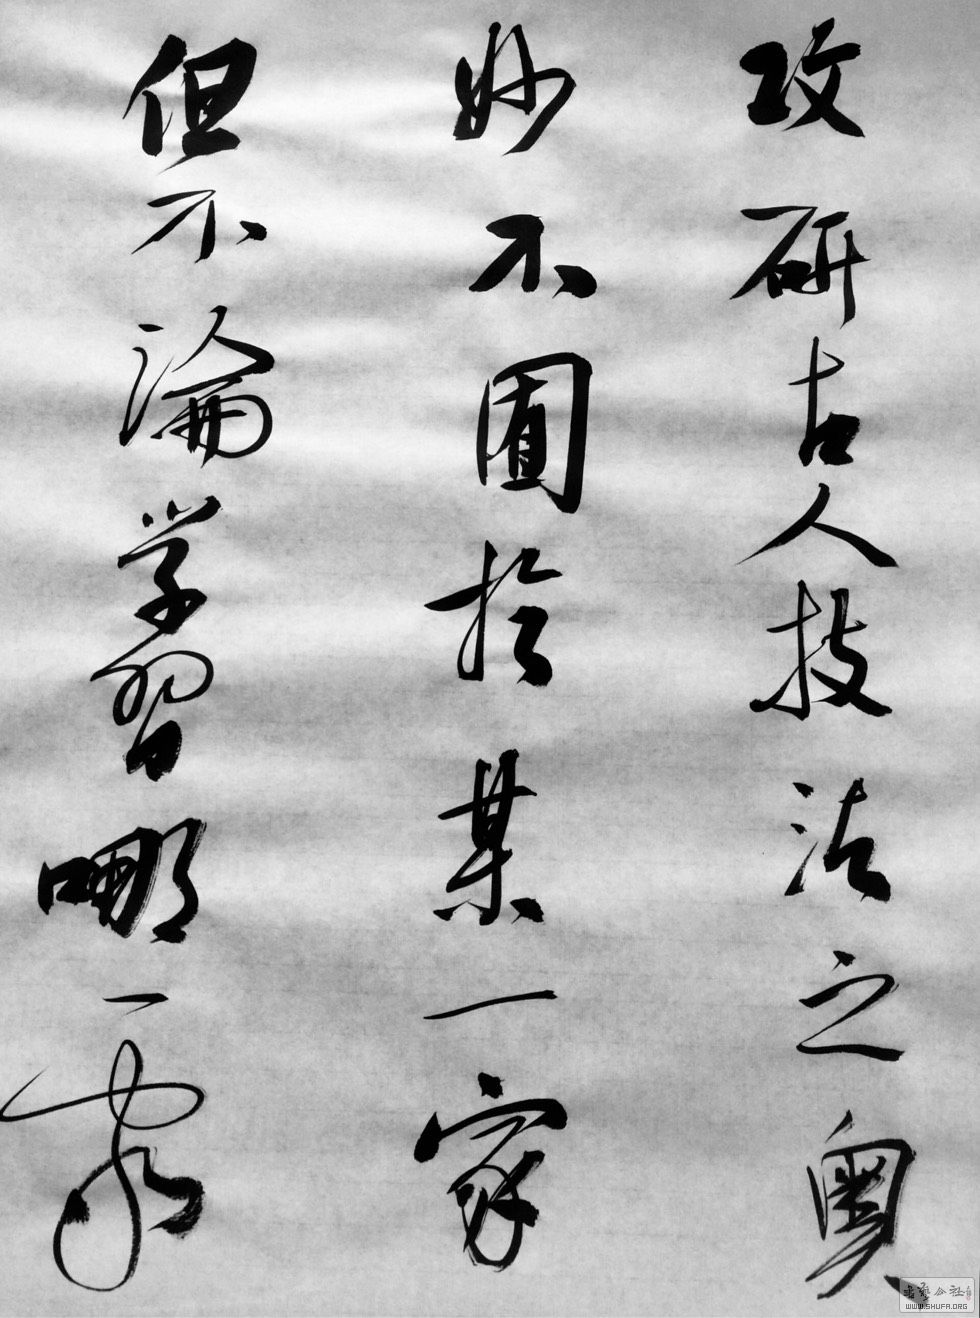 攻研古人技法之奥
妙不囿扵某一家
但不論学習哪一家
書藝公社
WWW.SHUFA.ORG